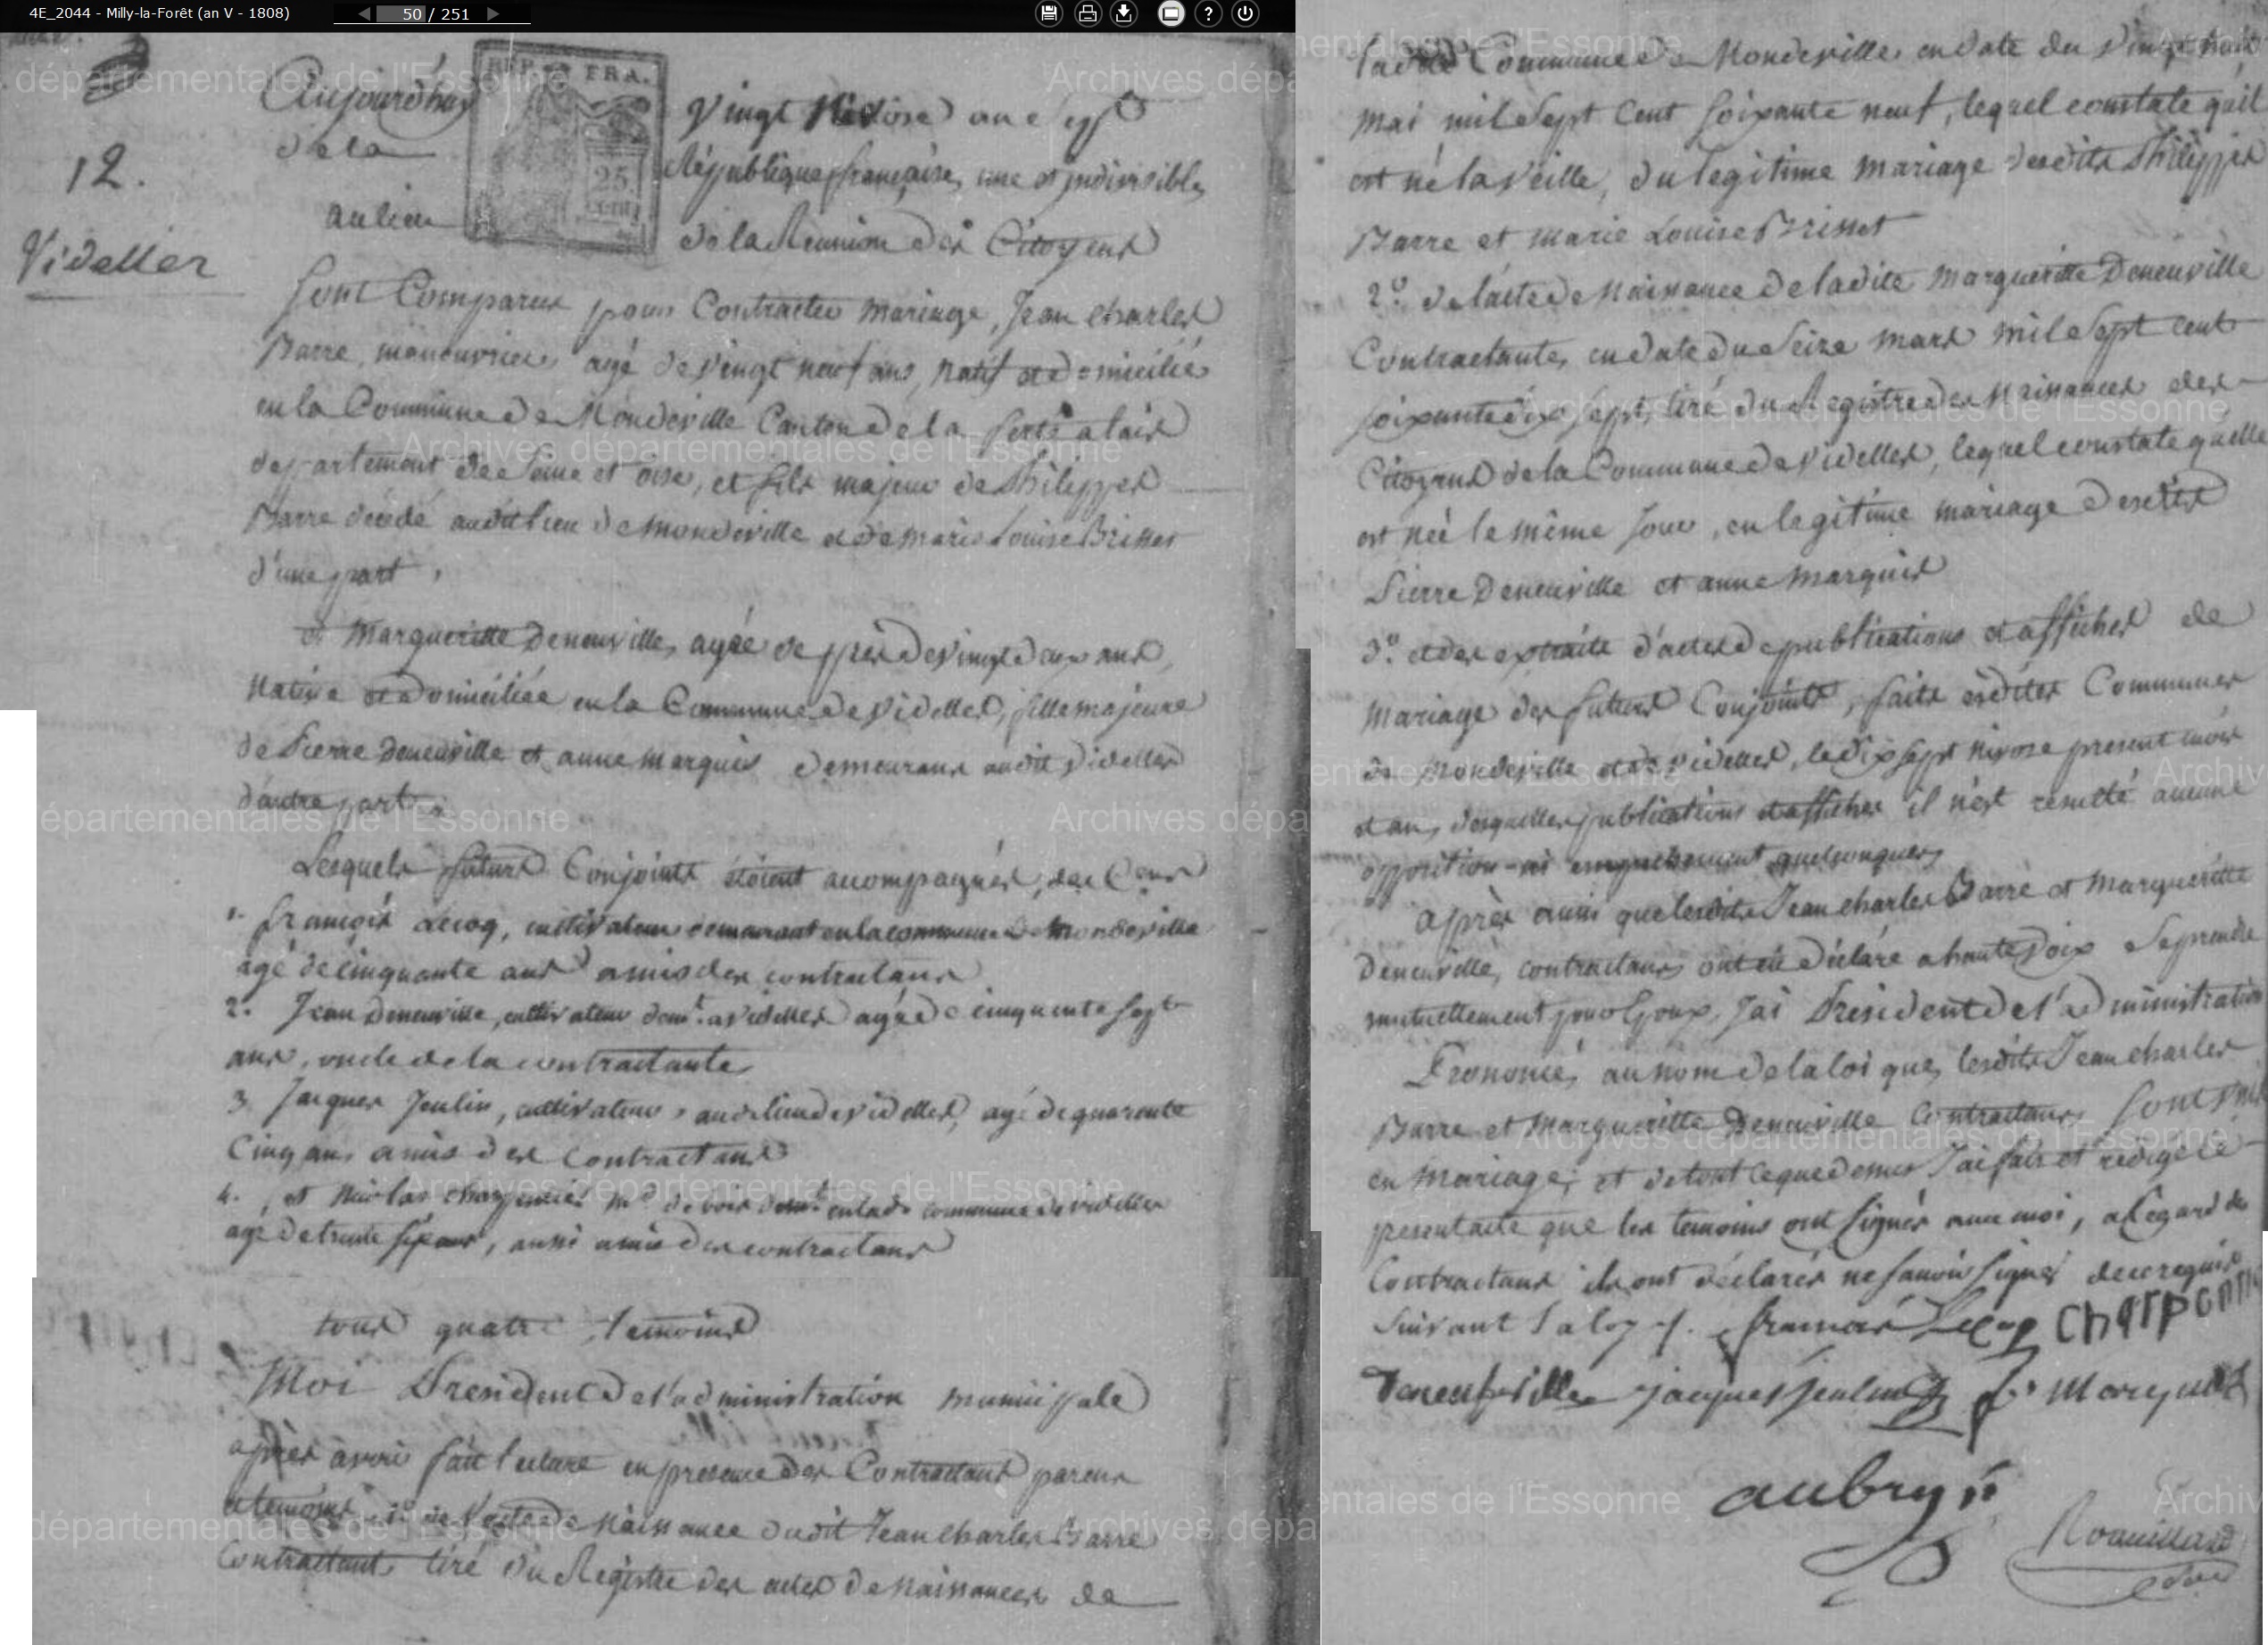 4E_2044 - Milly-la-Forêt (an V - 1808)
50 / 251
12.
Videlles
REP. FRA.
25.
cent.
Aujourdhuy vingt Nivôse an sept
de la République française, une et indivisible,
au lieu de la Réunion des Citoyens
Sont Comparus pour Contracter mariage, Jean Charles
Barre, manouvrier, agé de vingt neuf ans, natif et domicilié
en la Commune de Mondeville Canton de la ferté alais
departement de Seine et oise, et fils majeur de Philippes
Barre décédé audit lieu de mondeville et de marie Louise Brisset
d'une part,
et Margueritte Deneuville, agée de près de vingt deux ans,
Native et domiciliée en la Commune de Videlles, fille majeure
de Pierre deneuville et anne marquis demeurans audit Videlles
d'autre part.
Lesquels futurs Conjoints étoient accompagnés, des Cens
1. françois Lecoq, cultivateur demeurant en la commune de Mondeville
agé de cinquante ans amis des contractans
2. Jean Deneuville, cultivateur demt. a videlles agé de cinquante sept
ans, oncle de la contractante
3 Jacques Jeulin, cultivateur, audit lieu de videlles, agé de quarente
Cinq ans amis des Contractans
4. et Nicolas charpentier md. de bois demt. en lade commune de videlles
agé de trente six ans, aussi amis des contractans
tous quatre temoins
Moi President de l'administration municipale
après avoir fait lecture en presence des Contractans parens
et temoins 1o. de l'acte de Naissance dudit Jean charles Barre
Contractant, tiré du Registre des actes de Naissances de
ladite Commune de Mondeville en date du vingt huit
mai mil sept Cent soixante neuf, lequel constate qu'il
est né la veille, du legitime mariage desdits Philippes
Barre et Marie Louise Brisset
2o. de l'acte de Naissance de ladite Margueritte Deneuville
Contractante, en date du Seize mars mil sept cent
soixante dix sept, tiré du Registre des Naissances des
Citoyens de la Commune de videlles, lequel constate quelle
est née le même Jour, en legitime mariage desdits
Pierre Deneuville et anne Marquis
3o. et des extraits d'actes de publications et affiches de
Mariage des futurs Conjoints, faits esdites Communes
de Mondeville et de videlles, le dix sept nivose present mois
et an, desquelles publications et affiches il n'est resulté aucune
opposition ni empechement quelconques,
après aussi que lesdits Jean charles Barre et Margueritte
Deneuville, contractans ont eu déclaré a haute voix se prendre
mutuellement pour Epoux, J'ai President de l'administration
Prononcé, au nom de la loi que, lesdits Jean charles
Barre et Margueritte Deneuville Contractans, sont unis
en Mariage; et de tout ce que dessus J'ai fait et redigé le
present acte que les temoins ont signés avec moi, a l'egard des
Contractans ils ont déclarés ne savoir signer de ce requis
suivant la loy. francois Lecoq Charpentier
Deneufville jacques jeulin Marquis
aubry
Rouillard
Archives départementales de l'Essonne